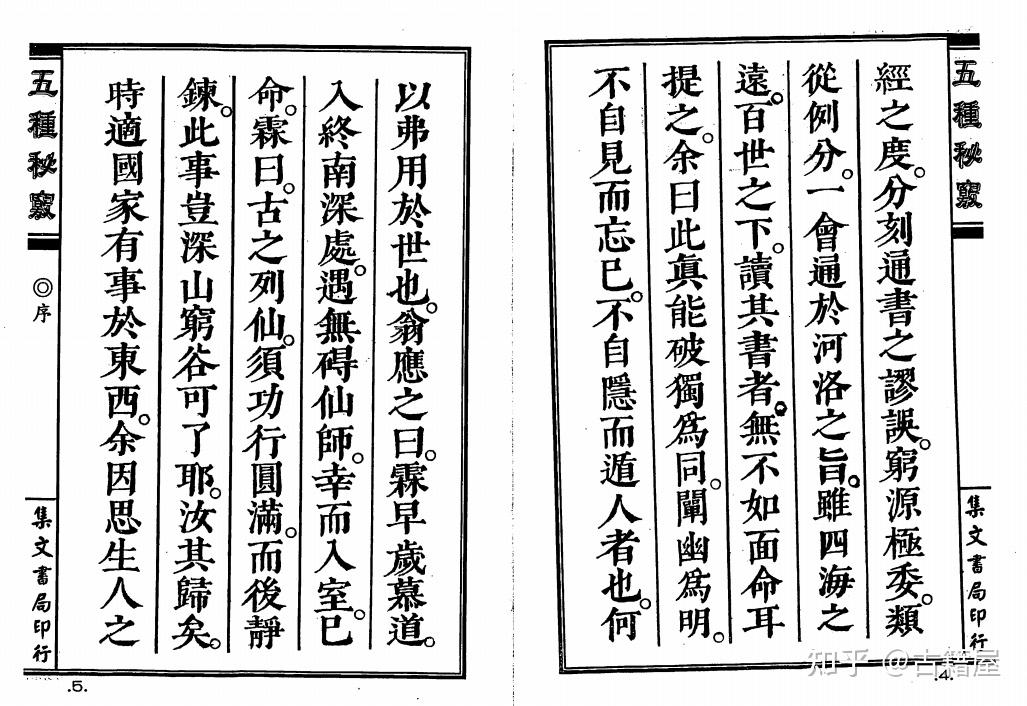 五種秘竅
經之度。分刻通書之謬誤。窮源極委。類
從例分。一會通於河洛之旨。雖四海之
遠。百世之下。讀其書者。無不如面命耳
提之。余曰此真能破獨為同。闡幽為明。
不自見而忘已。不自隱而遁人者也。何
集文書局印行
.4.
以弗用於世也。翁應之曰。霖早歲慕道。
入終南深處。遇無碍仙師。幸而入室。已
命。霖曰。古之列仙。須功行圓滿。而後靜
鍊。此事豈深山窮谷可了耶。汝其歸矣。
時適國家有事於東西。余因思生人之
五種秘竅
◎序
集文書局印行
.5.
知乎 @古籍屋